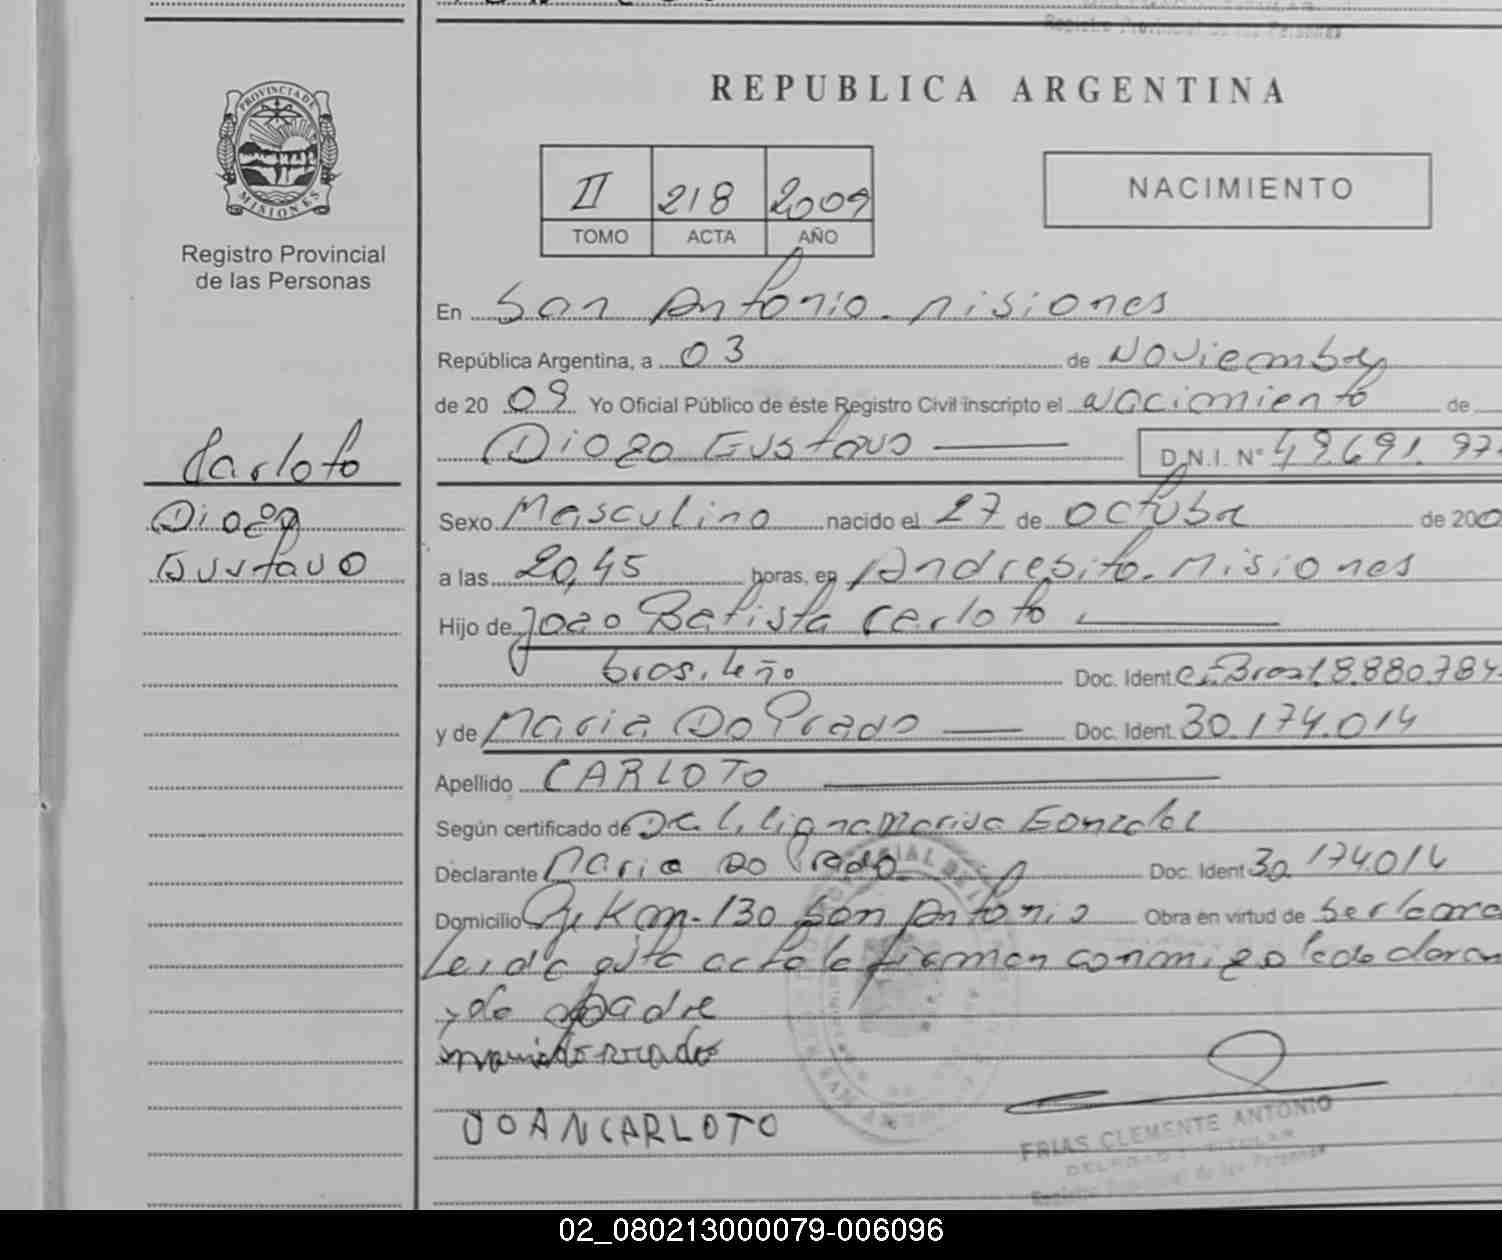 Registro Provincial de las Personas
REPUBLICA ARGENTINA
PROVINCIA DE
MISIONES
Registro Provincial
de las Personas
II 218 2009
TOMO ACTA AÑO
NACIMIENTO
En San Antonio. Misiones
República Argentina, a 03 de Noviembre
de 20 09 Yo Oficial Público de éste Registro Civil inscripto el nacimiento de
Diogo Gustavo D.N.I. N° 49.691.97
Carloto
Diogo
Gustavo
Sexo Masculino nacido el 27 de octubre de 200
a las 20,45 horas, en Andresito. Misiones
Hijo de Joao Batista Carloto
brasileño Doc. Ident C.I. Brasil 8.880.784
y de Maria Do Prado Doc. Ident. 30.174.014
Apellido CARLOTO
Según certificado de Dra. Liliana Marisa Gonzalez
Declarante Maria Do Prado Doc. Ident 30.174.014
Domicilio Km-130 San Antonio Obra en virtud de ser la
Leida esta acta la firman conmigo la
y de padre
JOANCARLOTO
FRIAS CLEMENTE ANTONIO
DELEGADO TITULAR
Registro Provincial de las Personas
02_080213000079-006096